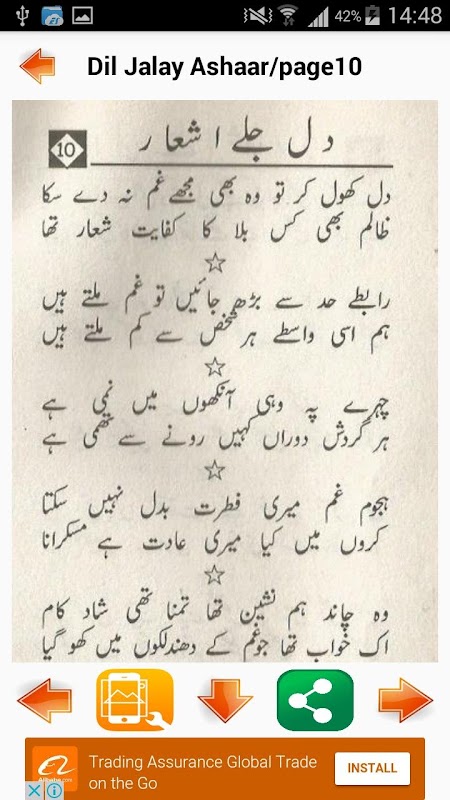 42% 14:48
Dil Jalay Ashaar/page10
10 دل جلے اشعار
دل کھول کر تو وہ بھی مجھے غم نہ دے سکا
ظالم بھی کس بلا کا کفایت شعار تھا
رابطے حد سے بڑھ جائیں تو غم ملتے ہیں
ہم اسی واسطے ہر شخص سے کم ملتے ہیں
چہرے پہ وہی آنکھوں میں نمی ہے
ہر گردش دوراں کہیں رونے سے تھمی ہے
ہجوم غم میری فطرت بدل نہیں سکتا
کروں میں کیا میری عادت ہے مسکرانا
وہ چاند ہم نشین تھا تمنا تھی شاد کام
اک خواب تھا جو غم کے دھندلکوں میں کھو گیا
Trading Assurance Global Trade
on the Go
INSTALL